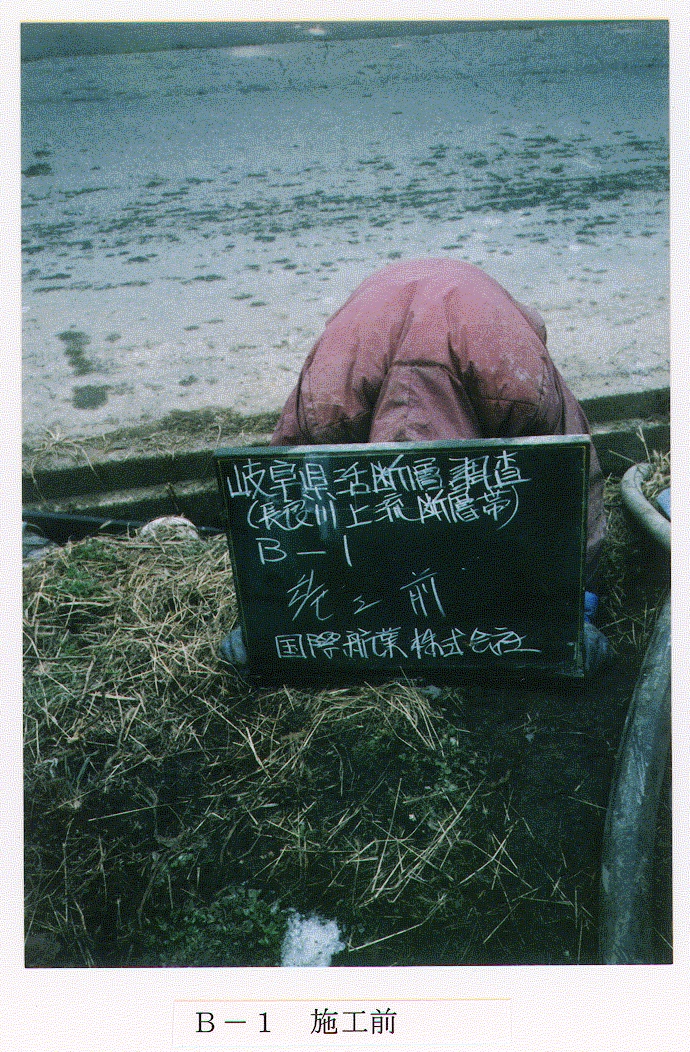 岐阜県活断層調査
(長良川上流断層帯)
B-1
施工前
国際航業株式会社
B-1 施工前